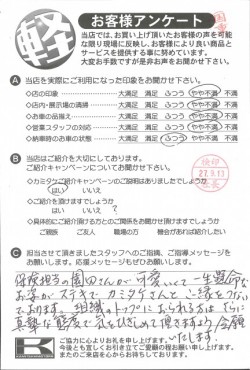 軽
お客様アンケート
当店では、お買い上げ頂いたお客様の声を可能
な限り現場に反映し、お客様により良い商品と
サービスを提供する事に努めています。
大変お手数ですが是非お声をお聞かせ下さい。
A 当店を実際にご利用になった印象をお聞かせ下さい。
◇店の印象 大満足 満足 ふつう やや不満 不満
◇店内・展示場の清掃 大満足 満足 ふつう やや不満 不満
◇お車の品揃え 大満足 満足 ふつう やや不満 不満
◇営業スタッフの対応 大満足 満足 ふつう やや不満 不満
◇納車時のお車の状態 大満足 満足 ふつう やや不満 不満
B 当店はご紹介を大切にしております。
ご紹介キャンペーンについてお聞かせ下さい。
◇カミタケご紹介キャンペーンのご説明はありましたでしょうか
はい いいえ
◇ご紹介を頂けますでしょうか
はい いいえ ?
◇具体的にご紹介頂ける方とのご関係をお聞かせ頂けますか
ご親族 ご友人 職場の方 機会があれば紹介したい
27.9.13
C 担当させて頂きましたスタッフへのご指摘、ご指導メッセージを
お願いします。応援メッセージもぜひお願いします。
保険担当の園田さんが可愛いくて一生懸命な
お姿がステキでカミタケさんとご縁をつない
でおります。組織のトップにおられる方は さらに
真摯な態度で気をひきしめて頂きますよう、念願
いたします。
K
ご協力に心よりお礼を申し上げます。
今後とも宜しくお引き立てご愛顧の程お願い申し上げます。
またのご来店を心よりお待ちしております。